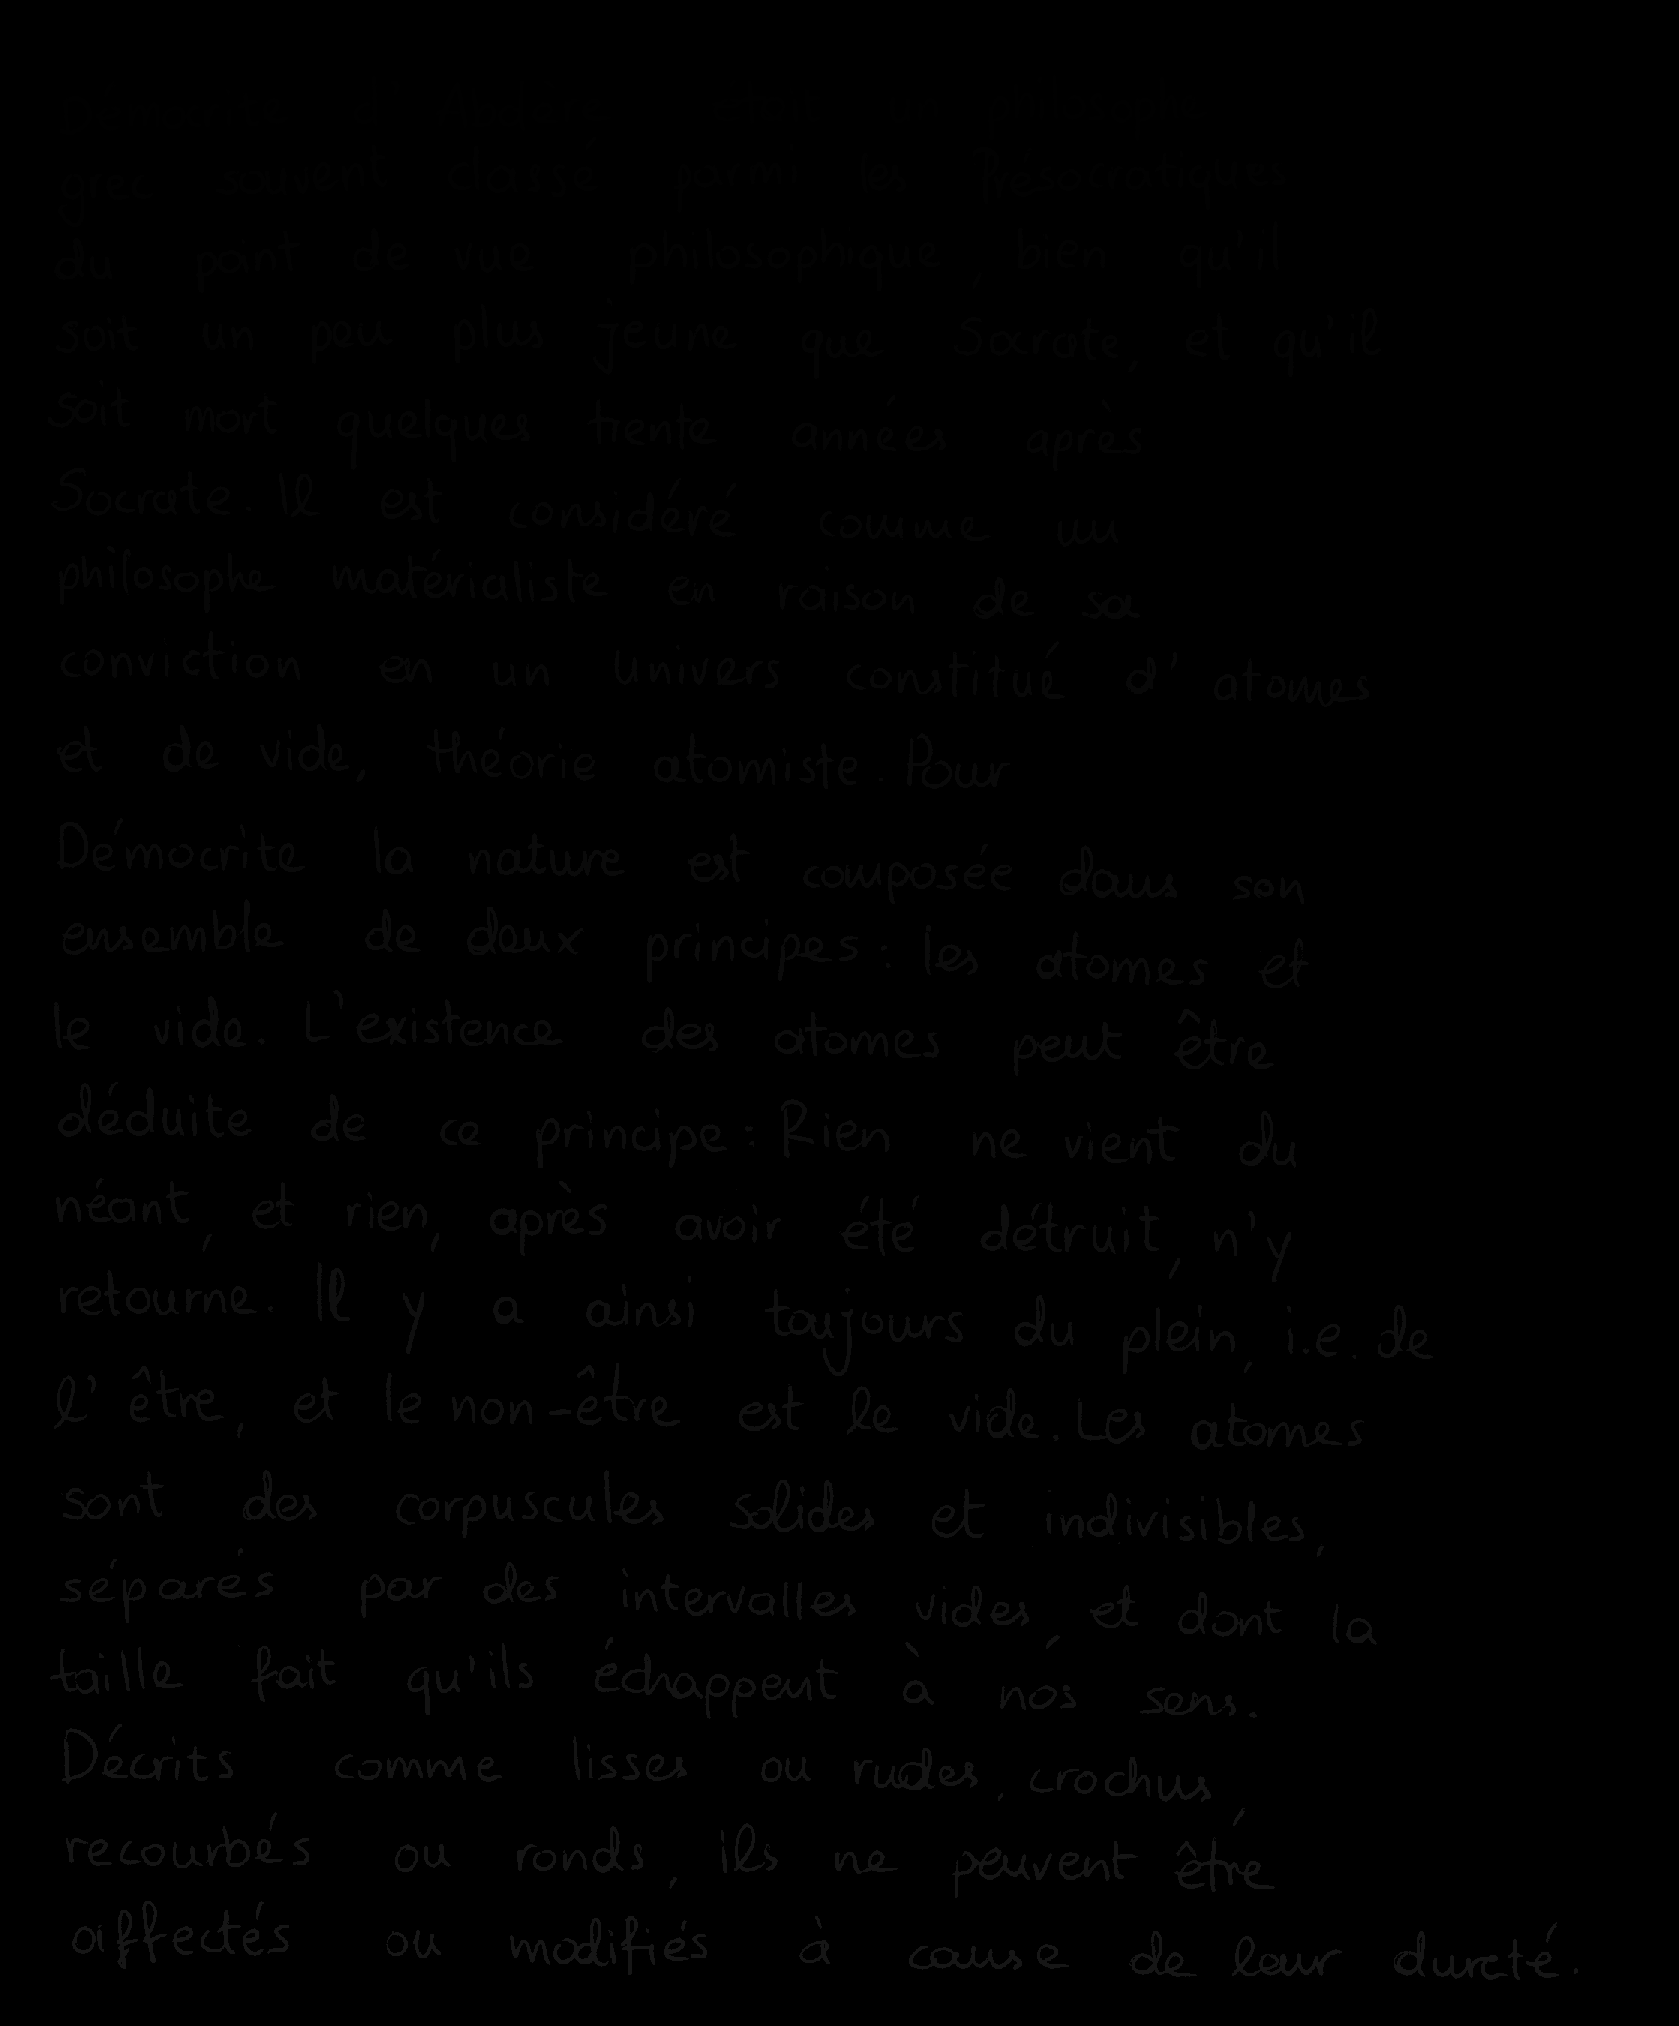 grec souvent classé parmi les Présocratiques
du point de vue philosophique, bien qu'il
soit un peu plus jeune que Socrate, et qu'il
soit mort quelques trente années après
Socrate. Il est considéré comme un
philosophe matérialiste en raison de sa
conviction en un Univers constitué d'atomes
et de vide, théorie atomiste. Pour
Démocrite la nature est composée dans son
ensemble de deux principes : les atomes et
le vide. L'existence des atomes peut être
déduite de ce principe : Rien ne vient du
néant, et rien, après avoir été détruit, n'y
retourne. Il y a ainsi toujours du plein, i.e. de
l'être, et le non-être est le vide. Les atomes
sont des corpuscules solides et indivisibles,
séparés par des intervalles vides, et dont la
taille fait qu'ils échappent à nos sens.
Décrits comme lisses ou rudes, crochus,
recourbés ou ronds, ils ne peuvent être
affectés ou modifiés à cause de leur dureté.